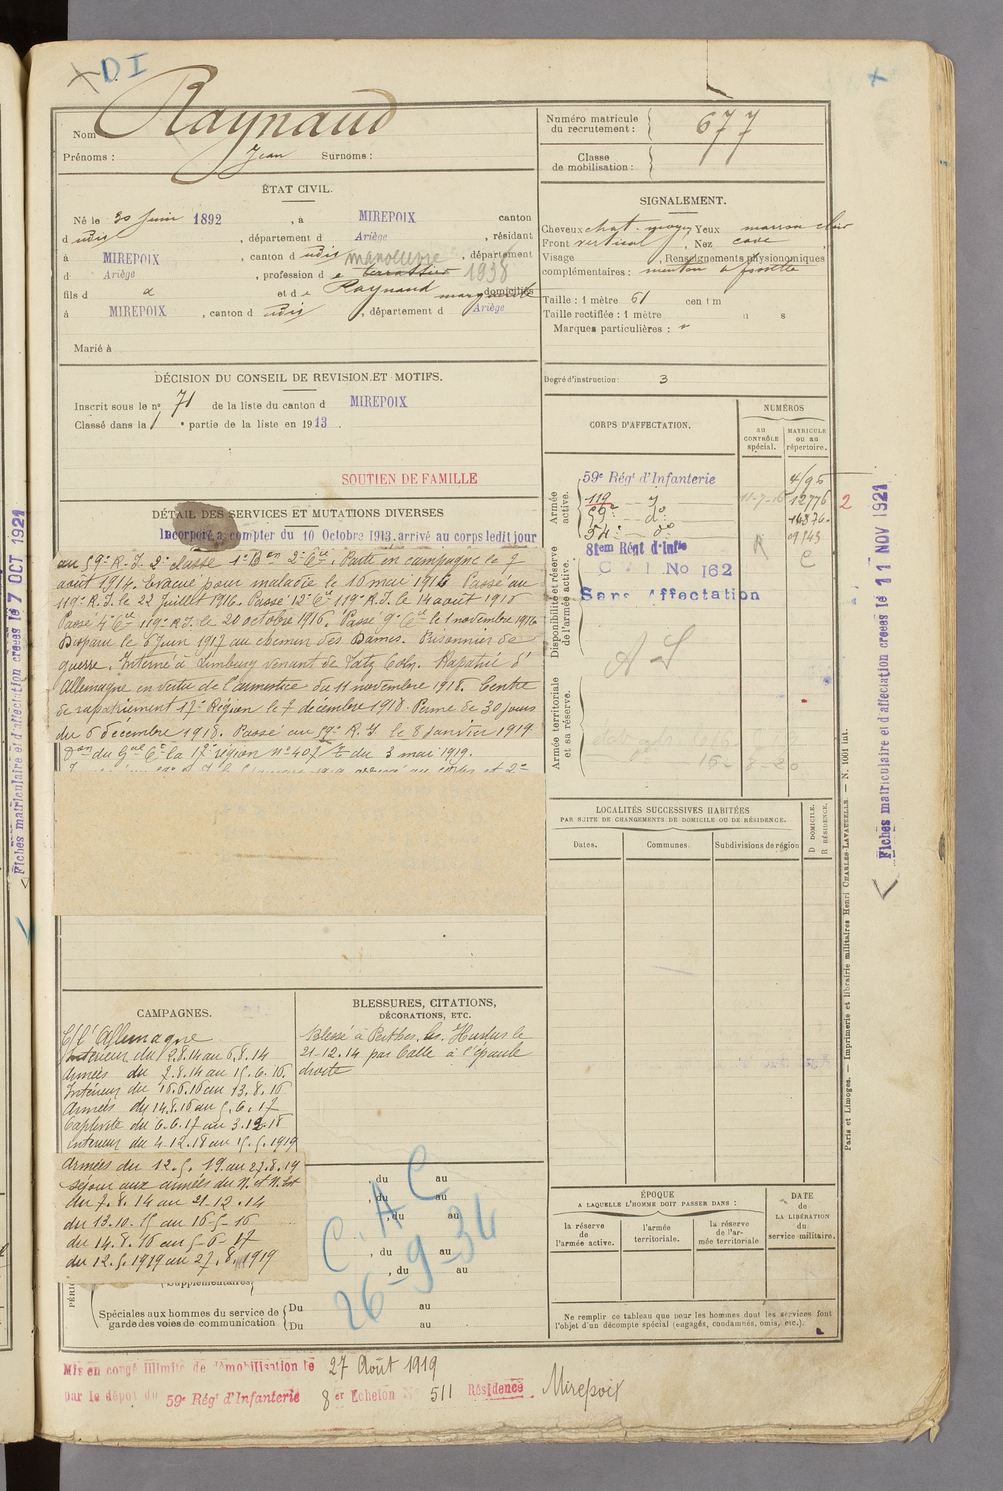 D I
Nom Raynaud
Prénoms : Jean Surnoms :
Numéro matricule
du recrutement : 677
Classe
de mobilisation :
ÉTAT CIVIL.
Né le 30 Juin 1892, à MIREPOIX canton
d udit, département d Ariège, résidant
à MIREPOIX, canton d udit manoeuvre, département
d Ariège, profession d e terrassier 1938
fils d et de Raynaud marguerite domiciliés
à MIREPOIX, canton d udit, département d Ariège
Marié à
SIGNALEMENT.
Cheveux chat. moyen Yeux marron clair
Front vertical, Nez cave
Visage, Renseignements physionomiques
complémentaires : menton à fossette
Taille : 1 mètre 61 centim
Taille rectifiée : 1 mètre
Marques particulières :
Degré d'instruction : 3
DÉCISION DU CONSEIL DE REVISION ET MOTIFS.
Inscrit sous le n° 71 de la liste du canton d MIREPOIX
Classé dans la 1 e partie de la liste en 1913.
SOUTIEN DE FAMILLE
DÉTAIL DES SERVICES ET MUTATIONS DIVERSES
Incorporé à compter du 10 Octobre 1913. arrivé au corps ledit jour
au 59e R.I. 2e classe 1er Bon 2e Cie. Parti en campagne le 7
août 1914. Evacué pour maladie le 10 mai 1916 Passé au
119e R.I. le 22 Juillet 1916. Passé 12e Cie 119e R.I. le 14 août 1916
Passé 4e Cie 119e R.I. le 20 octobre 1916. Passé 9e Cie le 1 novembre 1916
Disparu le 6 Juin 1917 au chemin des Dames. Prisonnier de
guerre. Interné à Limburg venant de Coln. Rapatrié d'
Allemagne en vertu de l'armistice du 11 novembre 1918. Centre
de rapatriement 17e Région le 7 décembre 1918. Perme de 30 jours
du 6 décembre 1918. Passé au 59e R.I. le 8 Janvier 1919
Don du Gal Ct la 17e région n° 407 du 3 mai 1919.
CORPS D'AFFECTATION.
NUMÉROS
au
CONTRÔLE
spécial.
MATRICULE
ou au
répertoire.
Armée
active.
59e Régt d'Infanterie 4195
119 11-7-16 12776 2
59e do 14876
54e do 09143
Disponibilité et réserve
de l'armée active.
81em Régt d'Infie R C
C M I No 162
Sans Affectation
A S
Armée territoriale
et sa réserve.
16-8-20
LOCALITÉS SUCCESSIVES HABITÉES
PAR SUITE DE CHANGEMENTS DE DOMICILE OU DE RÉSIDENCE.
Dates.
Communes.
Subdivisions de région
D DOMICILE.
R RÉSIDENCE.
CAMPAGNES.
C/l'Allemagne
Intérieur du 2.8.14 au 6.8.14
Armées du 7.8.14 au 15.6.16
Intérieur du 16.6.16 au 13.8.16
Armées du 14.8.16 au 5.6.17
Captivité du 6.6.17 au 3.12.18
Intérieur du 4.12.18 au 15.5.1919
Armées du 12.5.19 au 27.8.19
Séjour aux armées du N. et N. Est
du 7.8.14 au 21.12.14
du 13.10.15 au 16-5-16
du 14.8.16 au 5-6-17
du 12.5.1919 au 27.8.1919
BLESSURES, CITATIONS,
DÉCORATIONS, ETC.
Blessé à Perthes les Hurlus le
21-12.14 par balle à l'épaule
droite
, du au
, du au
, du au
, du au
, du au
C.A C
26-9-34
Supplémentaires
Spéciales aux hommes du service de
garde des voies de communication.
Du au
Du au
ÉPOQUE
A LAQUELLE L'HOMME DOIT PASSER DANS :
la réserve
de
l'armée active.
l'armée
territoriale.
la réserve
de l'ar-
mée territoriale
DATE
de
LA LIBÉRATION
du
service militaire.
Ne remplir ce tableau que pour les hommes dont les services font
l'objet d'un décompte spécial (engagés, condamnés, omis, etc.).
Mis en congé illimité de démobilisation le 27 Août 1919
par le dépôt du 59e Régt d'Infanterie 8er Echelon No 511 Résidence Mirepoix
Fiches matriculaire et d'affectation créées le 7 OCT 1921
Fiches matriculaire et d'affectation créées le 11 NOV 1921
Paris et Limoges. — Imprimerie et librairie militaires Henri CHARLES-LAVAUZELLE. — N. 1001 int.